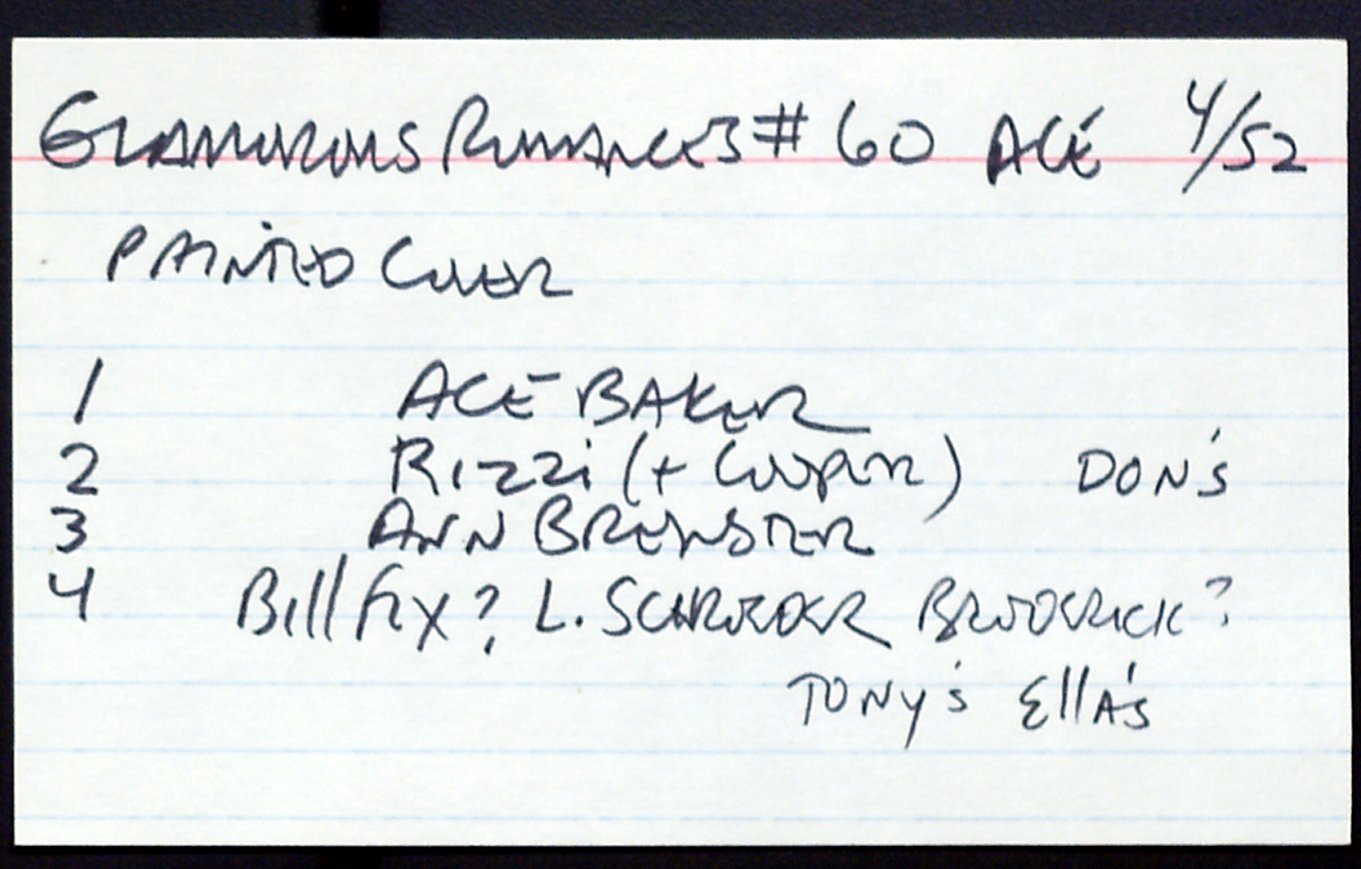 GLAMOROUS ROMANCES # 60 ACE 4/52
PAINTED COVER
1 ACE BAKER
2 RIZZI (+ COOPER) DON'S
3 ANN BREWSTER
4 Bill fix? L. SCHROEDER BRODERICK?
TONY'S EllA'S